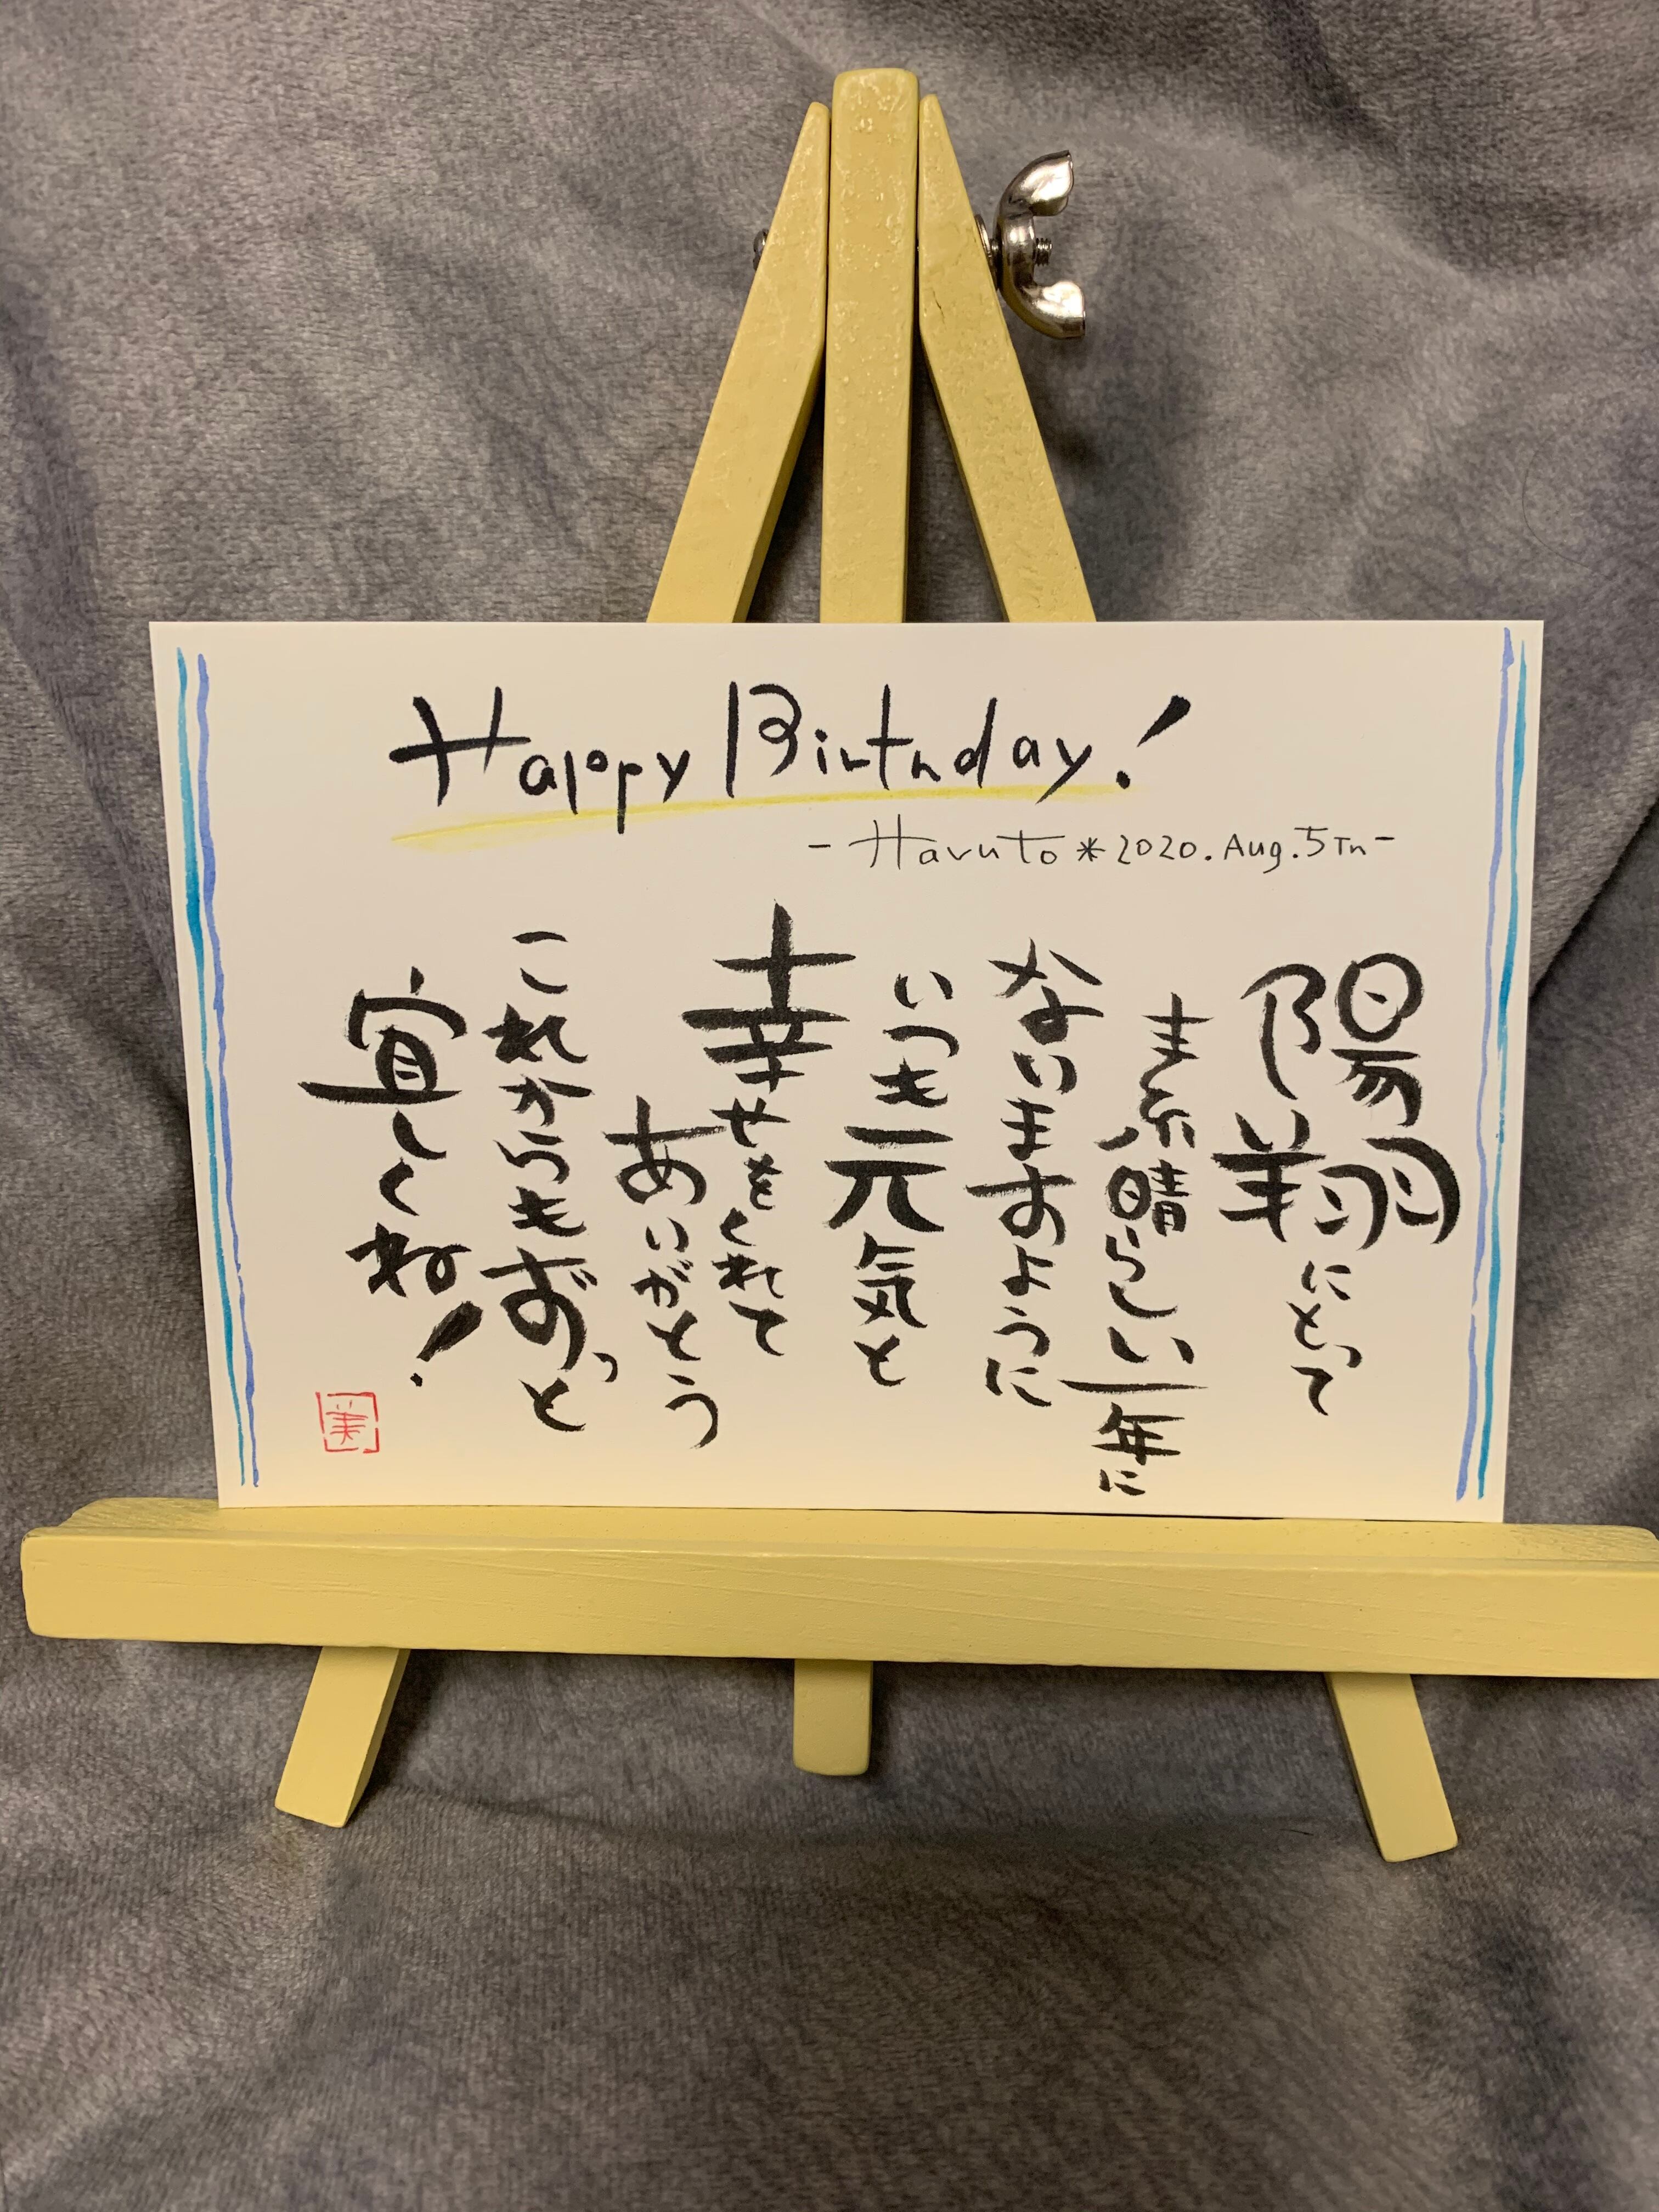 Happy Birthday!
-Haruto*2020.Aug.5Th-
陽翔にとって
素晴らしい一年に
なりますように
いつも元気と
幸せをくれて
ありがとう
これからもずっと
宜しくね!
美